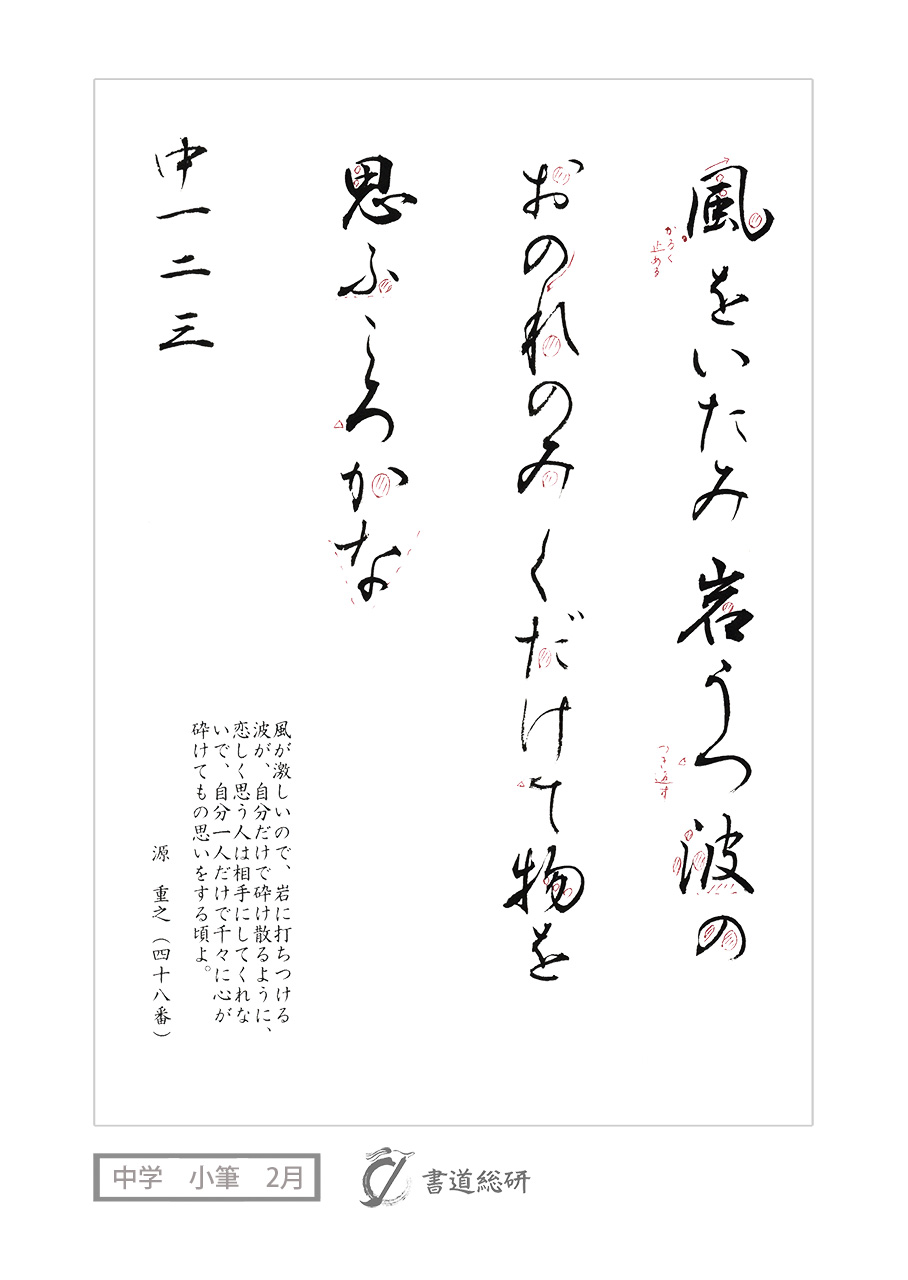 風をいたみ岩うつ波の
かるく
止める
つき返す
おのれのみくだけて物を
思ふころかな
中一二三
風が激しいので、岩に打ちつける
波が、自分だけで砕け散るように、
恋しく思う人は相手にしてくれな
いで、自分一人だけで千々に心が
砕けてもの思いをする頃よ。
源 重之(四十八番)
中学 小筆 2月
書道総研